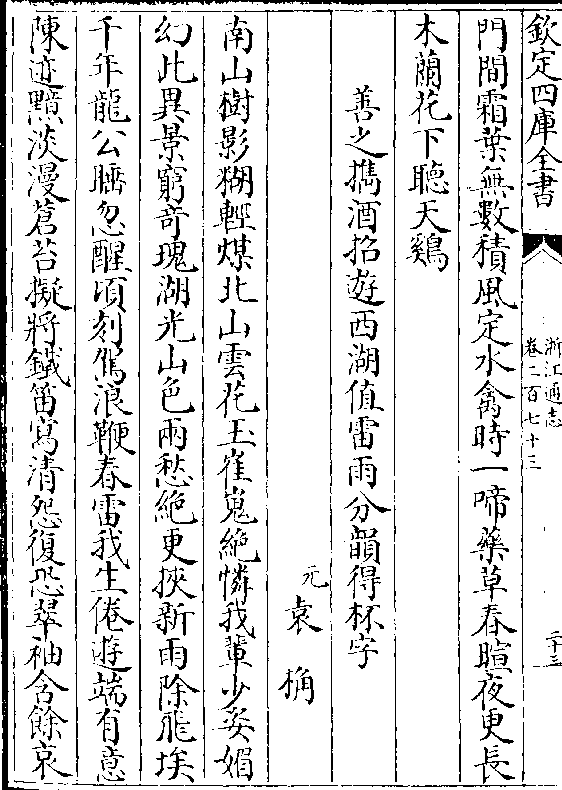 欽定四庫全書
浙江通志
卷二百七十三
二十三
門間霜葉無數積風定水禽時一啼藥草春暄夜更長
木蘭花下聽天鷄
善之攜酒招遊西湖值雷雨分韻得杯字
元袁桷
南山樹影糊輕煤北山雲花玉崔嵬絶憐我輩少姿媚
幻此異景窮奇瑰湖光山色兩愁絶更挾新雨除飛埃
千年龍公睡忽醒頃刻鴈浪鞭春雷我生倦遊端有意
陳迹黯淡漫蒼苔擬將鐵笛寫清怨復恐翠袖含餘哀